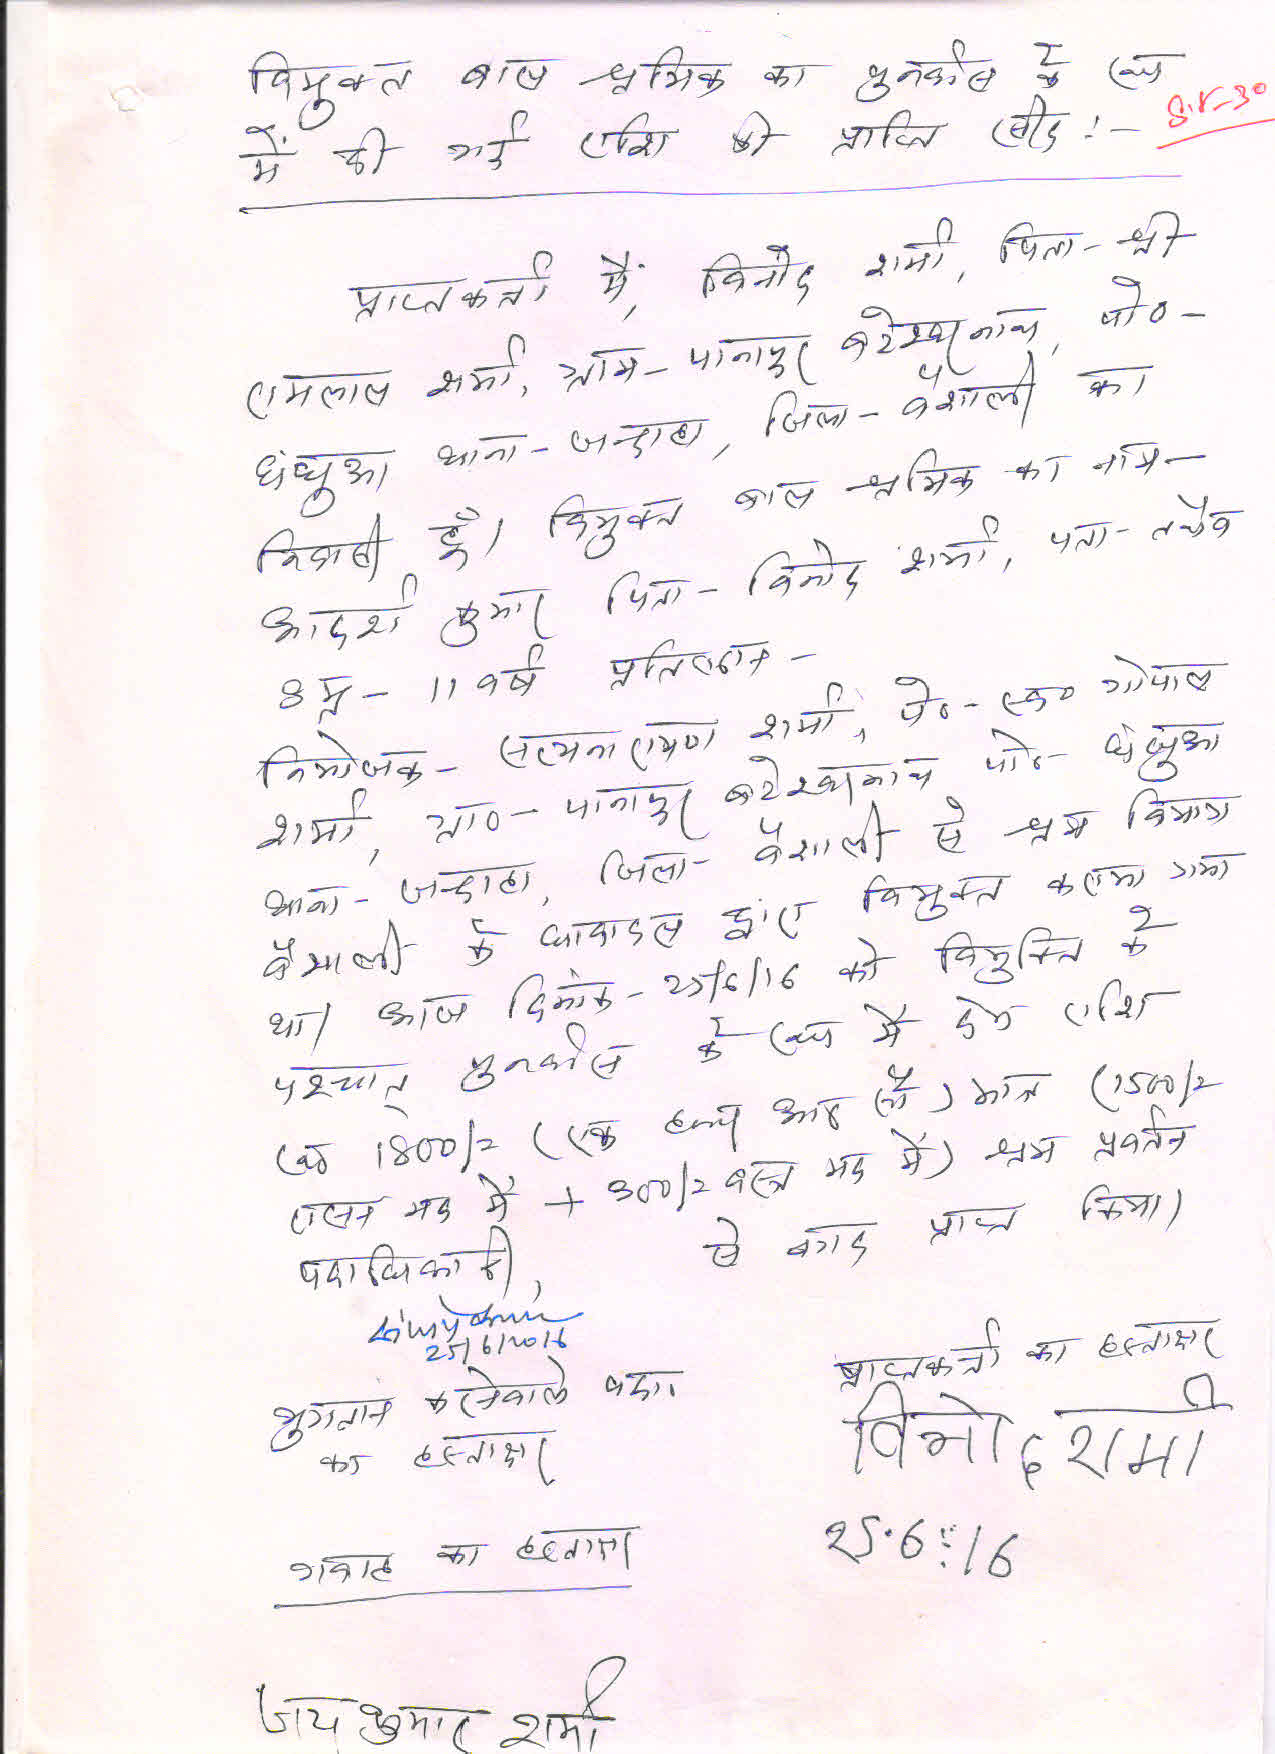 विमुक्त बाल श्रमिक का पुनर्वास के रूप
S.r-30
में दी गई राशि की प्राप्ति रसीद :-
प्राप्तकर्ता मैं, विनोद शर्मा, पिता- श्री
रामलाल शर्मा, ग्राम- पानापुर बटेश्वरनाथ, पो०-
धंधुआ थाना- जन्दाहा, जिला- वैशाली का
निवासी हूँ। विमुक्त बाल श्रमिक का नाम-
आदर्श कुमार पिता- विनोद शर्मा, पता- तथैव
उम्र- 11 वर्ष प्रतिष्ठान-
नियोजक- सत्यनारायण शर्मा, पे०- स्व० गोपाल
शर्मा, ग्रा०- पानापुर बटेश्वरनाथ पो०- धंधुआ
थाना- जन्दाहा, जिला- वैशाली से श्रम विभाग
वैशाली के धावादल द्वारा विमुक्त कराया गया
था। आज दिनांक- 25/6/16 को विमुक्ति के
पश्चात् पुनर्वास के रूप में देय राशि
रू० 1800/= (एक हजार आठ सौ) मात्र (1500/=
राशन मद में + 300/= वस्त्र मद में) श्रम प्रवर्तन
पदाधिकारी, से नगद प्राप्त किया।
25/6/2016
प्राप्तकर्ता का हस्ताक्षर
भुगतान करनेवाले पदा०
का हस्ताक्षर
विनोद शर्मा
25.6.16
गवाह का हस्ताक्षर
जय कुमार शर्मा